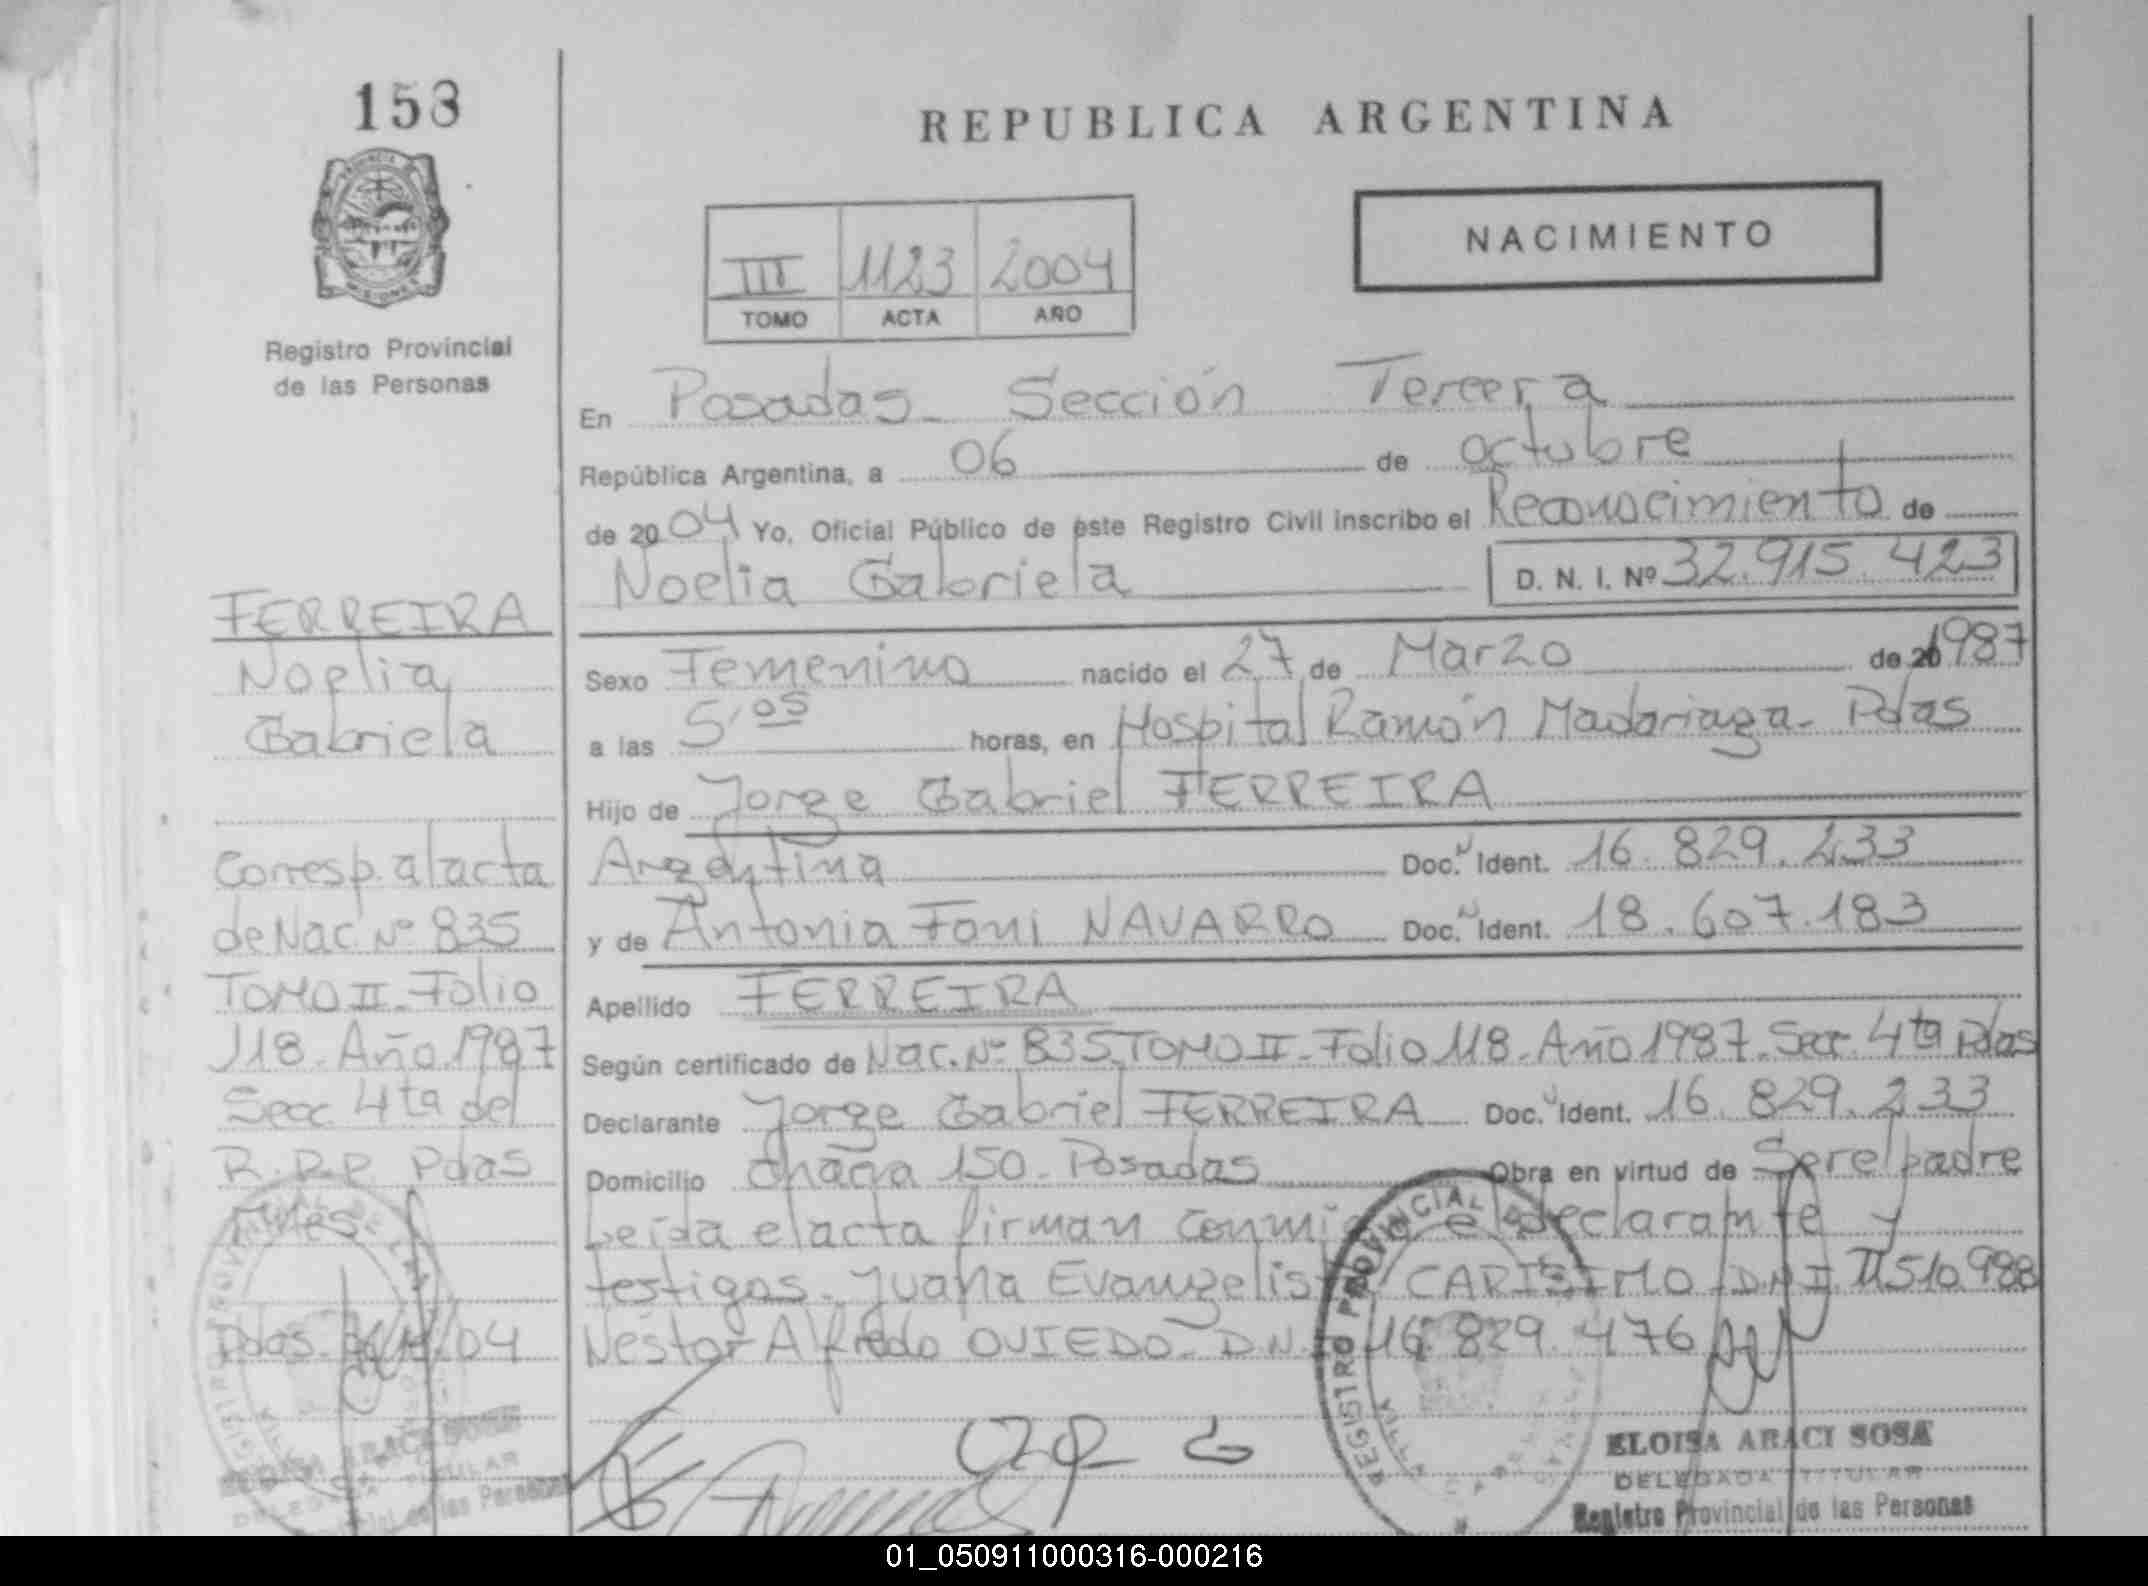 153
REPUBLICA ARGENTINA
NACIMIENTO
III 1123 2004
TOMO ACTA AÑO
MISIONES
Registro Provincial
de las Personas
En Posadas - Sección Tercera
República Argentina, a 06 de octubre
de 2004 Yo, Oficial Público de este Registro Civil inscribo el Reconocimiento de
Noelia Gabriela D. N. I. Nº 32.915.423
FERREIRA
Noelia
Gabriela
Sexo Femenino nacido el 27 de Marzo de 1987
a las 5,05 horas, en Hospital Ramón Madariaga - Pdas
Hijo de Jorge Gabriel FERREIRA
Argentina Doc. Ident. 16.829.233
y de Antonia Toni NAVARRO Doc. Ident. 18.607.183
Apellido FERREIRA
Según certificado de Nac. Nº 835 TOMO II - Folio 118 - Año 1987 - Secc. 4ta Pdas
Declarante Jorge Gabriel FERREIRA Doc. Ident. 16.829.233
Domicilio Chacra 150 - Posadas Obra en virtud de Ser el padre
Leída el acta firman conmigo el declarante y
testigos - Juana Evangelista CARISIMO D.N.I 11.510.988
Néstor Alfredo OVIEDO - D.N.I 16.829.476
Corresp. al acta
de Nac. Nº 835
TOMO II - Folio
118 - Año 1987
Secc. 4ta del
R.P.P. Pdas
Mnes.
Pdas. 04
REGISTRO PROVINCIAL DE LAS
ELOISA ARACI SOSA
DELEGADA TITULAR
Registro Provincial de las Personas
DELEGADA TITULAR
de las Personas
01_050911000316-000216